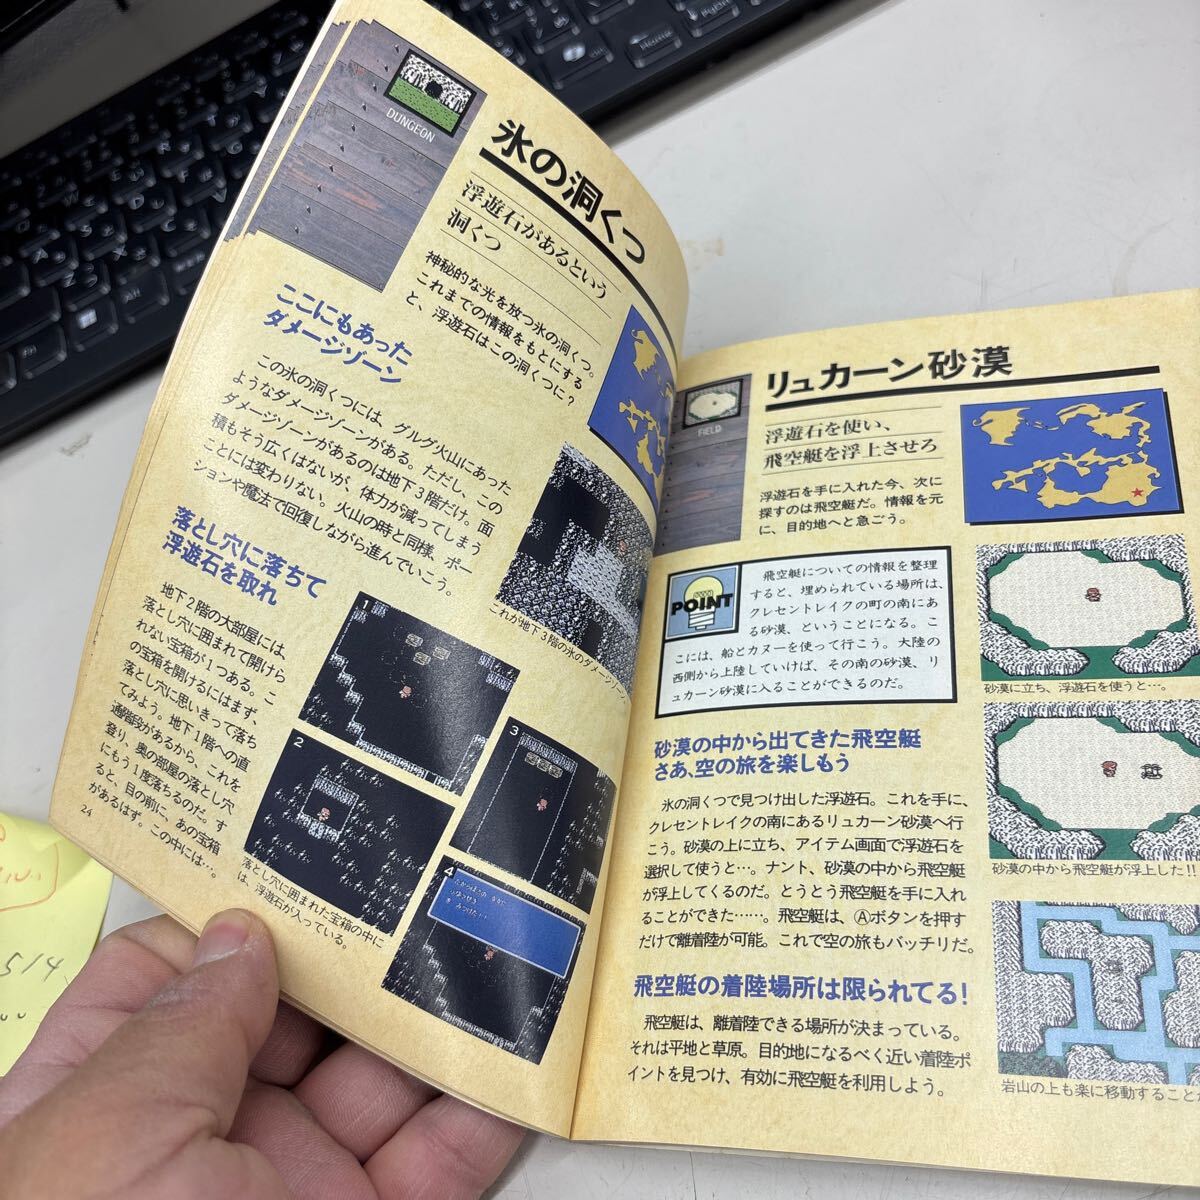 DUNGEON
氷の洞くつ
浮遊石があるという
洞くつ
神秘的な光を放つ氷の洞くつ。
これまでの情報をもとにする
と、浮遊石はこの洞くつに?
ここにもあった
ダメージゾーン
この氷の洞くつには、グルグ火山にあった
ようなダメージゾーンがある。ただし、この
ダメージゾーンがあるのは地下3階だけ。面
積もそう広くはないが、体力が減ってしまう
ことには変わりない。火山の時と同様、ポー
ションや魔法で回復しながら進んでいこう。
これが地下3階の氷のダメージゾーン。
落とし穴に落ちて
浮遊石を取れ
地下2階の大部屋には、
落とし穴に囲まれて開けら
れない宝箱が1つある。こ
の宝箱を開けるにはまず、
落とし穴に思いきって落ち
てみよう。地下1階への直
通階段があるから、これを
登り、奥の部屋の落とし穴
にもう1度落ちるのだ。す
ると、目の前に、あの宝箱
があるはず。この中には…。
1
2
3
4
落とし穴に囲まれた宝箱の中に
は、浮遊石が入っている。
24
リュカーン砂漠
FIELD
浮遊石を使い、
飛空艇を浮上させろ
浮遊石を手に入れた今、次に
探すのは飛空艇だ。情報を元
に、目的地へと急ごう。
POINT
飛空艇についての情報を整理
すると、埋められている場所は、
クレセントレイクの町の南にあ
る砂漠、ということになる。こ
こには、船とカヌーを使って行こう。大陸の
西側から上陸していけば、その南の砂漠、リ
ュカーン砂漠に入ることができるのだ。
砂漠に立ち、浮遊石を使うと…。
砂漠の中から出てきた飛空艇
さあ、空の旅を楽しもう
氷の洞くつで見つけ出した浮遊石。これを手に、
クレセントレイクの南にあるリュカーン砂漠へ行
こう。砂漠の上に立ち、アイテム画面で浮遊石を
選択して使うと…。ナント、砂漠の中から飛空艇
が浮上してくるのだ。とうとう飛空艇を手に入れ
ることができた……。飛空艇は、Ⓐボタンを押す
だけで離着陸が可能。これで空の旅もバッチリだ。
砂漠の中から飛空艇が浮上した!!
飛空艇の着陸場所は限られてる!
飛空艇は、離着陸できる場所が決まっている。
それは平地と草原。目的地になるべく近い着陸ポ
イントを見つけ、有効に飛空艇を利用しよう。
岩山の上も楽に移動することが
514